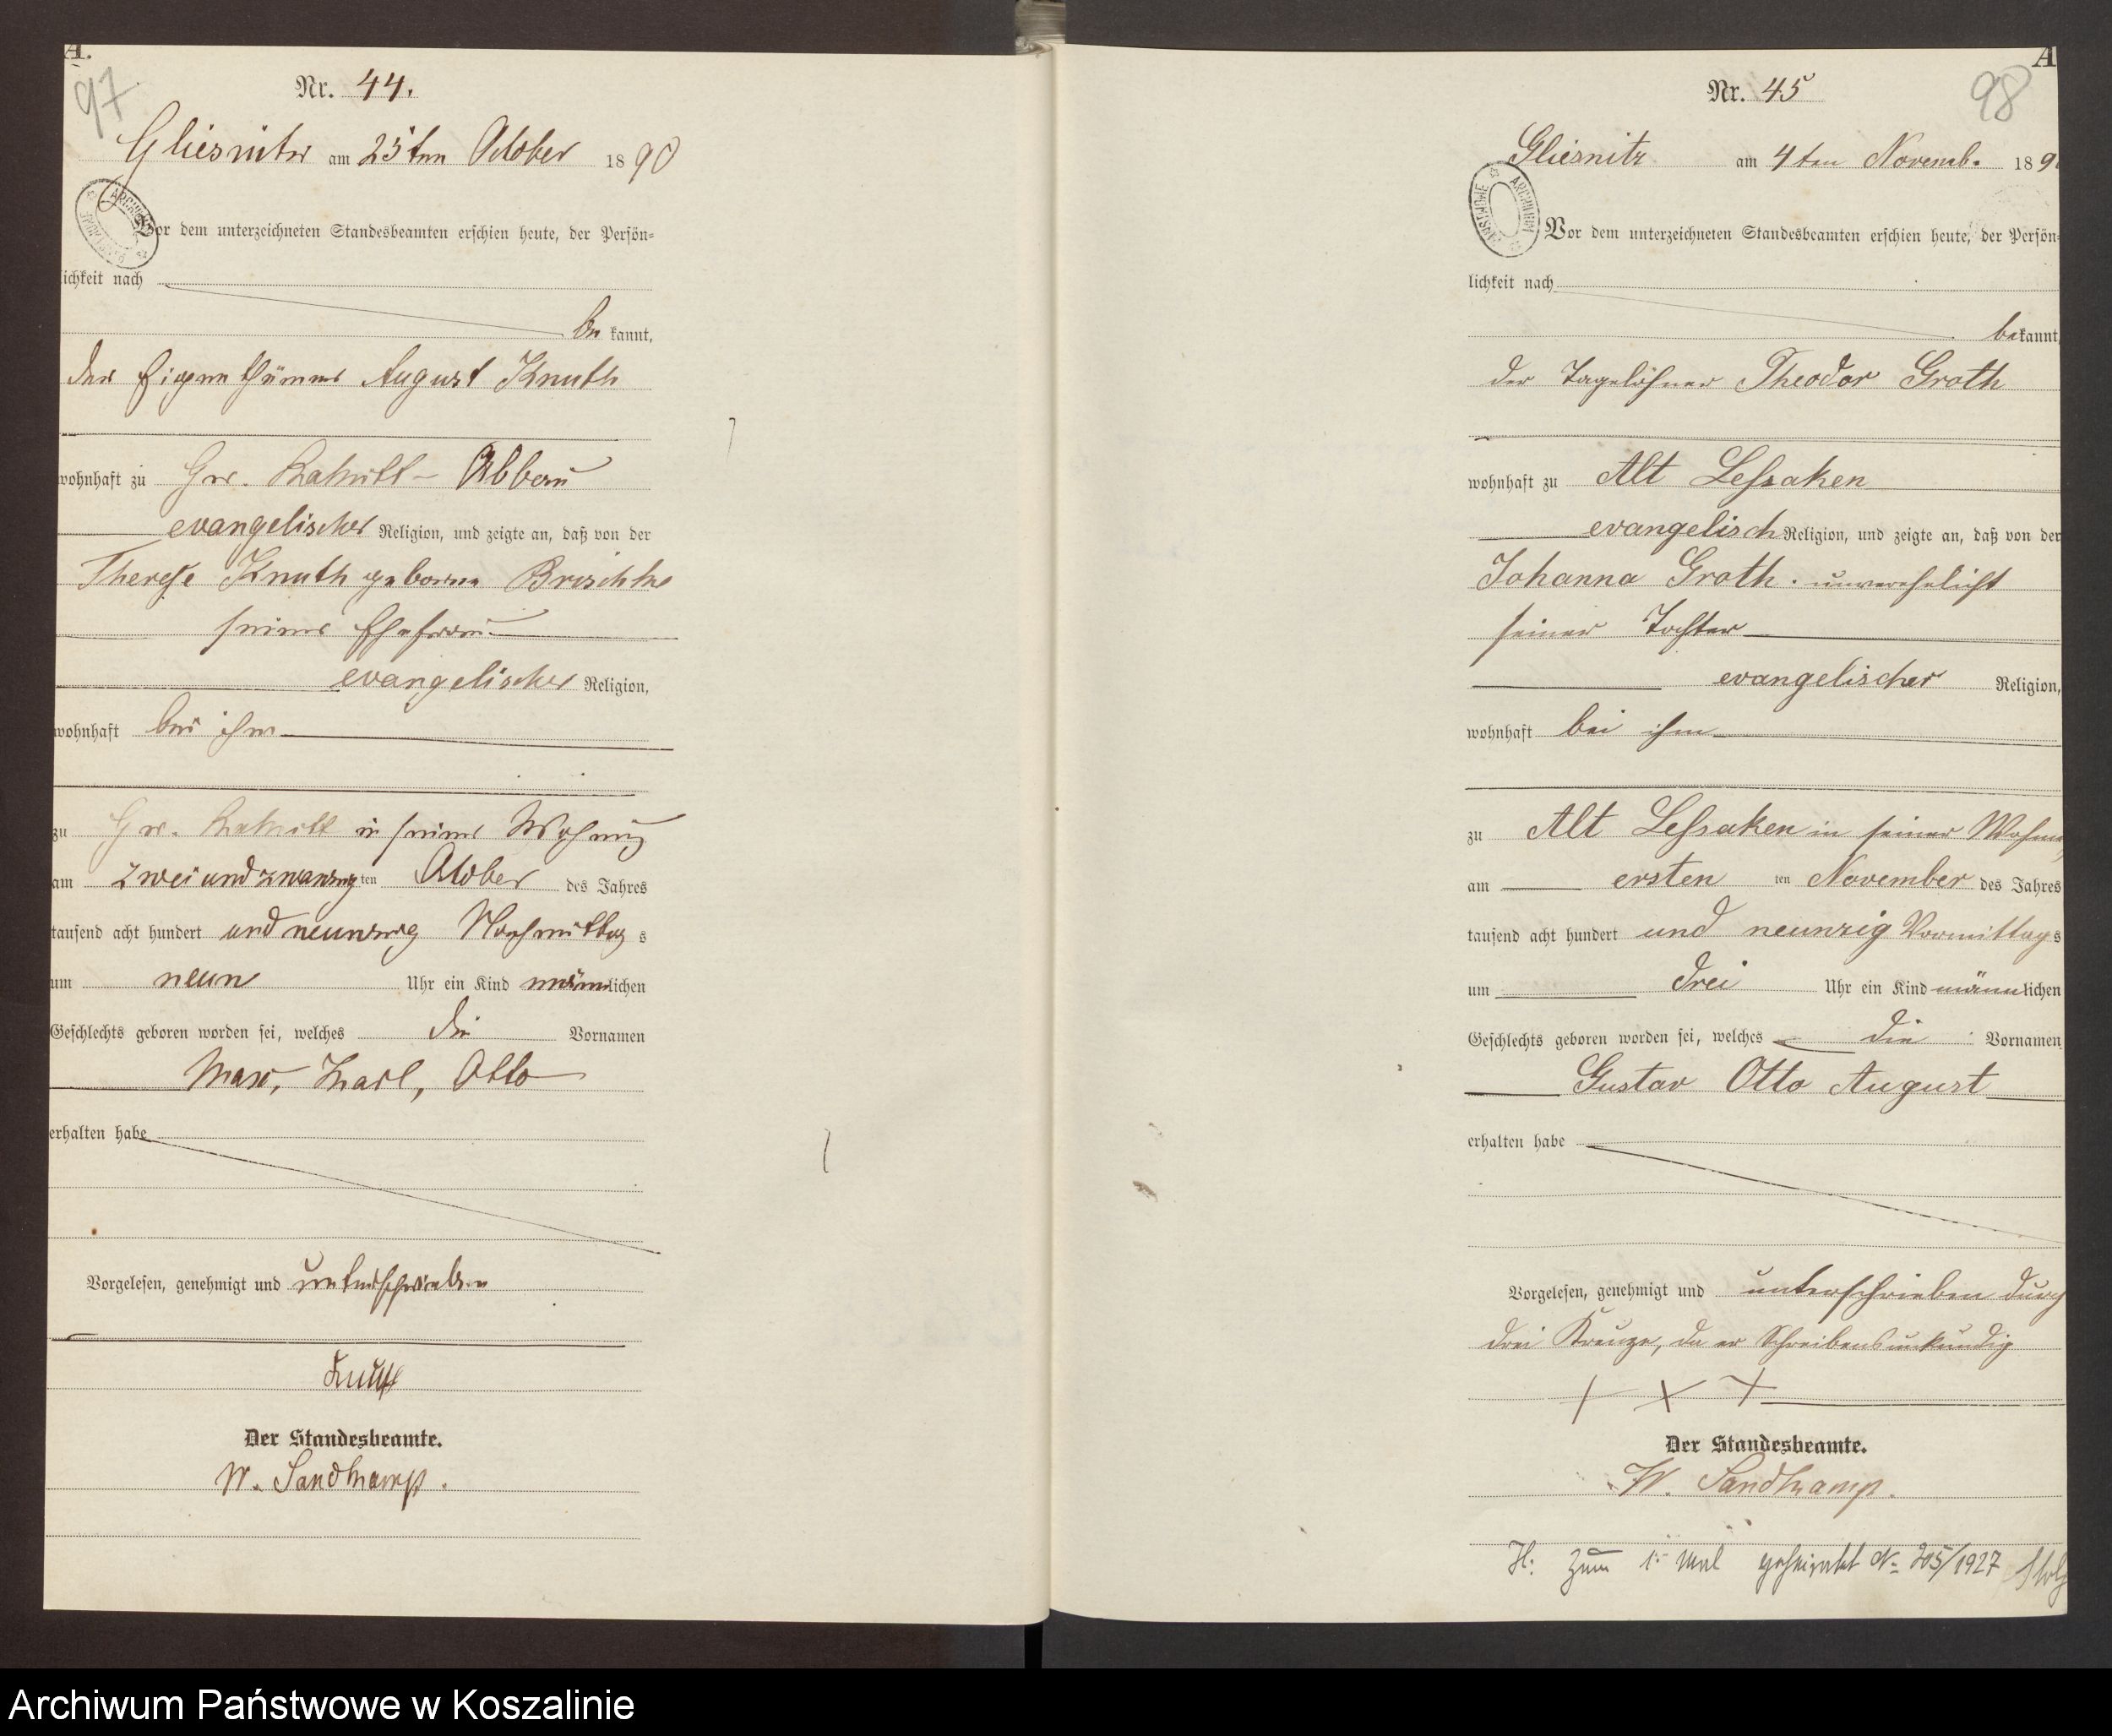 A.
97
Nr. 44.
Gliesnitz am 25ten October 1890
Vor dem unterzeichneten Standesbeamten erschien heute, der Persön-
lichkeit nach
be kannt,
der Eigenthümer August Knuth
wohnhaft zu Gr. Rakitt - Abbau
evangelischer Religion, und zeigte an, daß von der
Therese Knuth geborene Brischke
seiner Ehefrau
evangelischer Religion,
wohnhaft bei ihm
zu Gr. Rakitt in seiner Wohnung
am zweiundzwanzig ten October des Jahres
tausend acht hundert und neunzig Nachmittag s
um neun Uhr ein Kind männlichen
Geschlechts geboren worden sei, welches die Vornamen
Max, Karl, Otto
erhalten habe
Vorgelesen, genehmigt und unterschrieben
Knuth
Der Standesbeamte.
W. Sandkamp.
A
98
Nr. 45
Gliesnitz am 4ten Novemb. 189
ARCHIWUM PAŃSTWOWE
Vor dem unterzeichneten Standesbeamten erschien heute, der Persön-
lichkeit nach
bekannt,
der Tagelöhner Theodor Groth
wohnhaft zu Alt Lessaken
evangelisch Religion, und zeigte an, daß von der
Johanna Groth. unverehelicht
seiner Tochter
evangelischer Religion,
wohnhaft bei ihm
zu Alt Lessaken in seiner Wohnung
am ersten ten November des Jahres
tausend acht hundert und neunzig Vormittag s
um drei Uhr ein Kind männlichen
Geschlechts geboren worden sei, welches die Vornamen
Gustav Otto August
erhalten habe
Vorgelesen, genehmigt und unterschrieben durch
drei Kreuze, da er Schreibensunkundig
+ + +
Der Standesbeamte.
W. Sandkamp.
H: zum 1. Mal geheiratet Nr 205/1927 Stolp
Archiwum Państwowe w Koszalinie